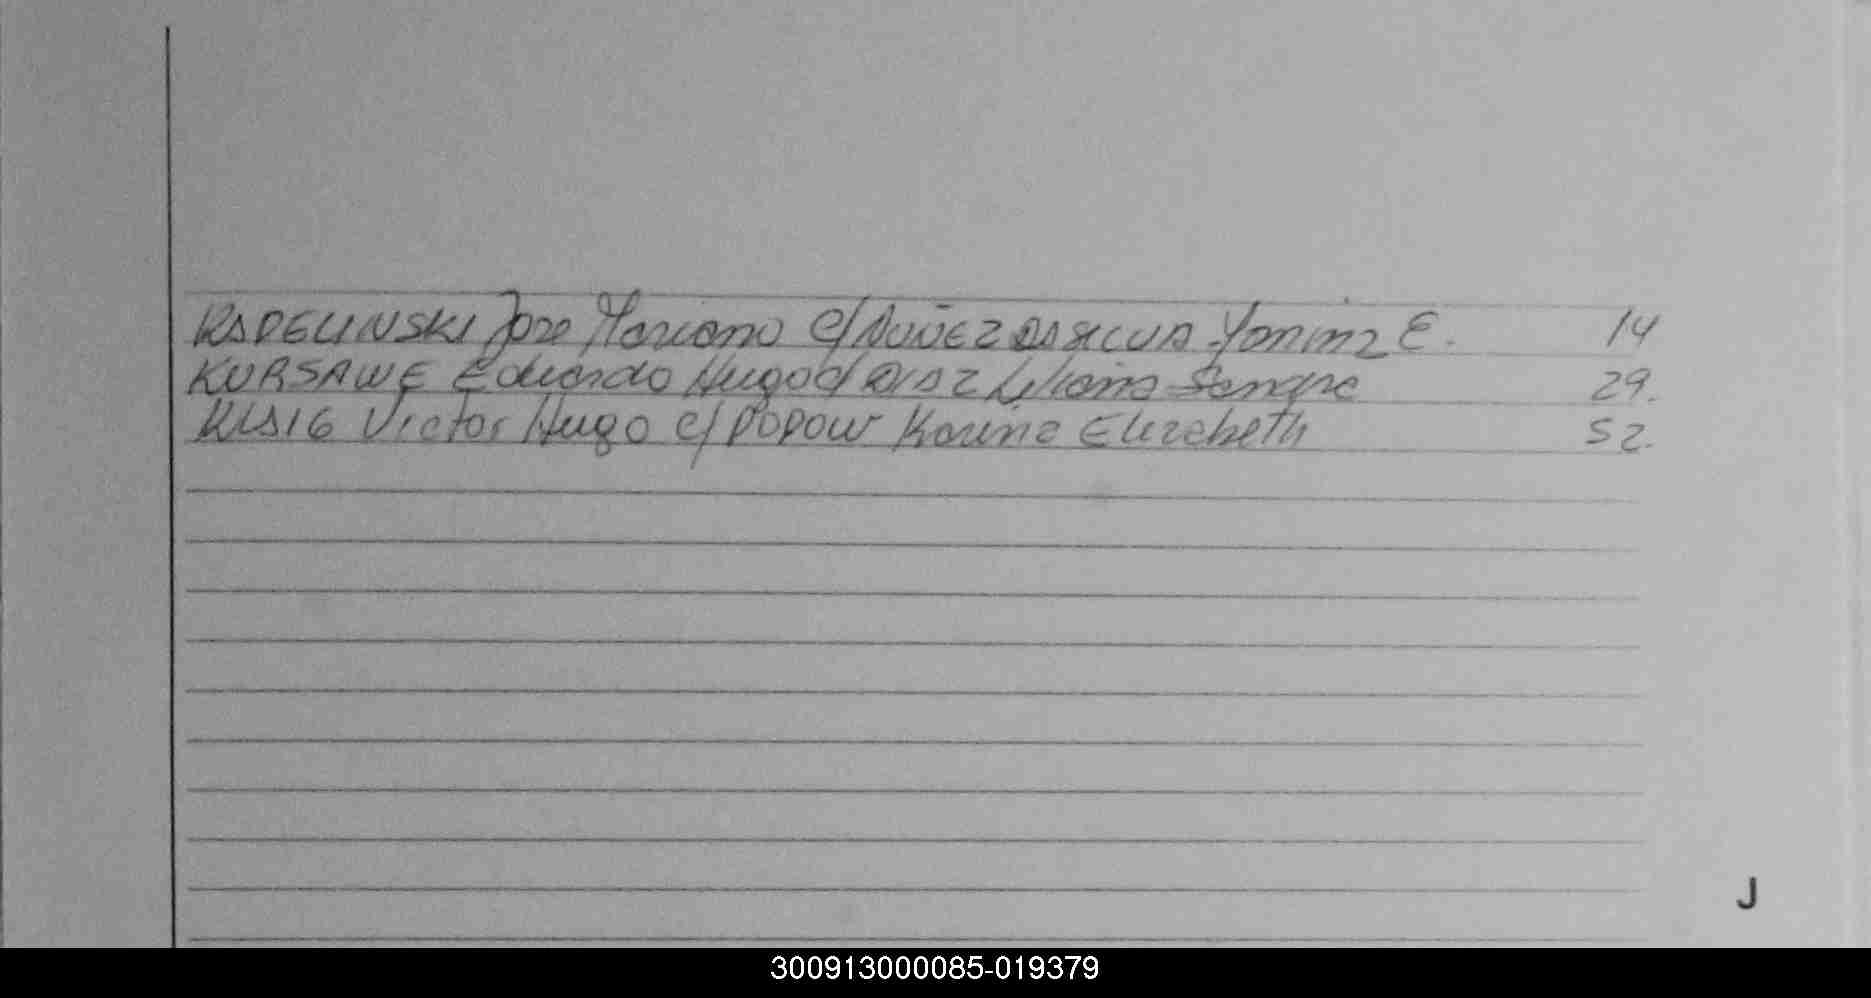 KAPELINSKI Jose Mariano c/ NUÑEZ Yanina E. 14
KURSAWE Eduardo Hugo c/ DIAZ Liliana 29.
KLAIG Victor Hugo c/ POPOW Karina Elizabeth 52.
J
300913000085-019379